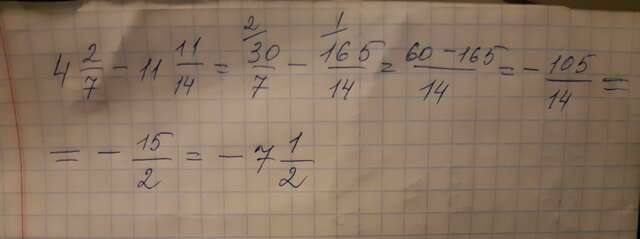 4 2/7 - 11 11/14 = 30/7 (2) - 165/14 (1) = 60-165/14 = - 105/14 =
= - 15/2 = - 7 1/2